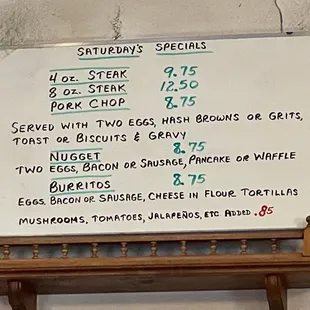 SATURDAY'S SPECIALS
4 OZ. STEAK 9.75
8 OZ. STEAK 12.50
PORK CHOP 8.75
SERVED WITH TWO EGGS, HASH BROWNS OR GRITS,
TOAST OR BISCUITS & GRAVY
NUGGET 8.75
TWO EGGS, BACON OR SAUSAGE, PANCAKE OR WAFFLE
BURRITOS 8.75
EGGS, BACON OR SAUSAGE, CHEESE IN FLOUR TORTILLAS
MUSHROOMS, TOMATOES, JALAPEÑOS, ETC. ADDED .85